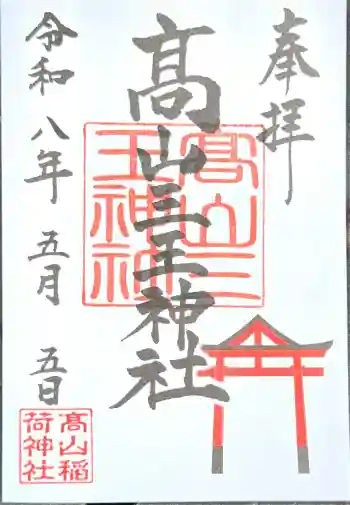 奉拝
高山三王神社
髙山三
王神社
令和八年 五月 五日
髙山稲
荷神社